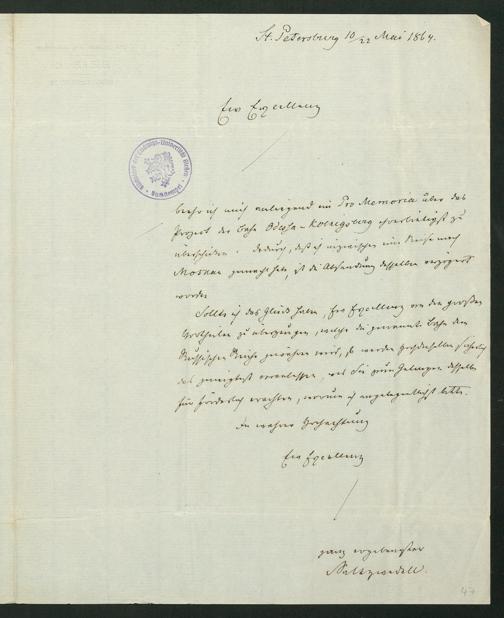 St. Petersburg 10/22 Mai 1864.
Ew Excellenz
beehre ich mich anliegend ein Pro Memoria über das
Project der Bahn Odessa-Koenigsberg ehrerbietigst zu
überschicken. dadurch, daß ich inzwischen eine Reise nach
Moskau gemacht habe, ist die Absendung desselben verzögert
worden
Sollte ich das Glück haben, Ew Excellenz von den großen
Vortheilen zu überzeugen, welche die genannte Bahn dem
Russischen Reiche gewähren wird, so werden Hochdieselben
das geneigtest veranlassen, was Sie zum Gelingen desselben
für förderlich erachten, worum ich angelegentlichst bitte.
In wahrer Hochachtung
Ew Excellenz
ganz ergebenster
47